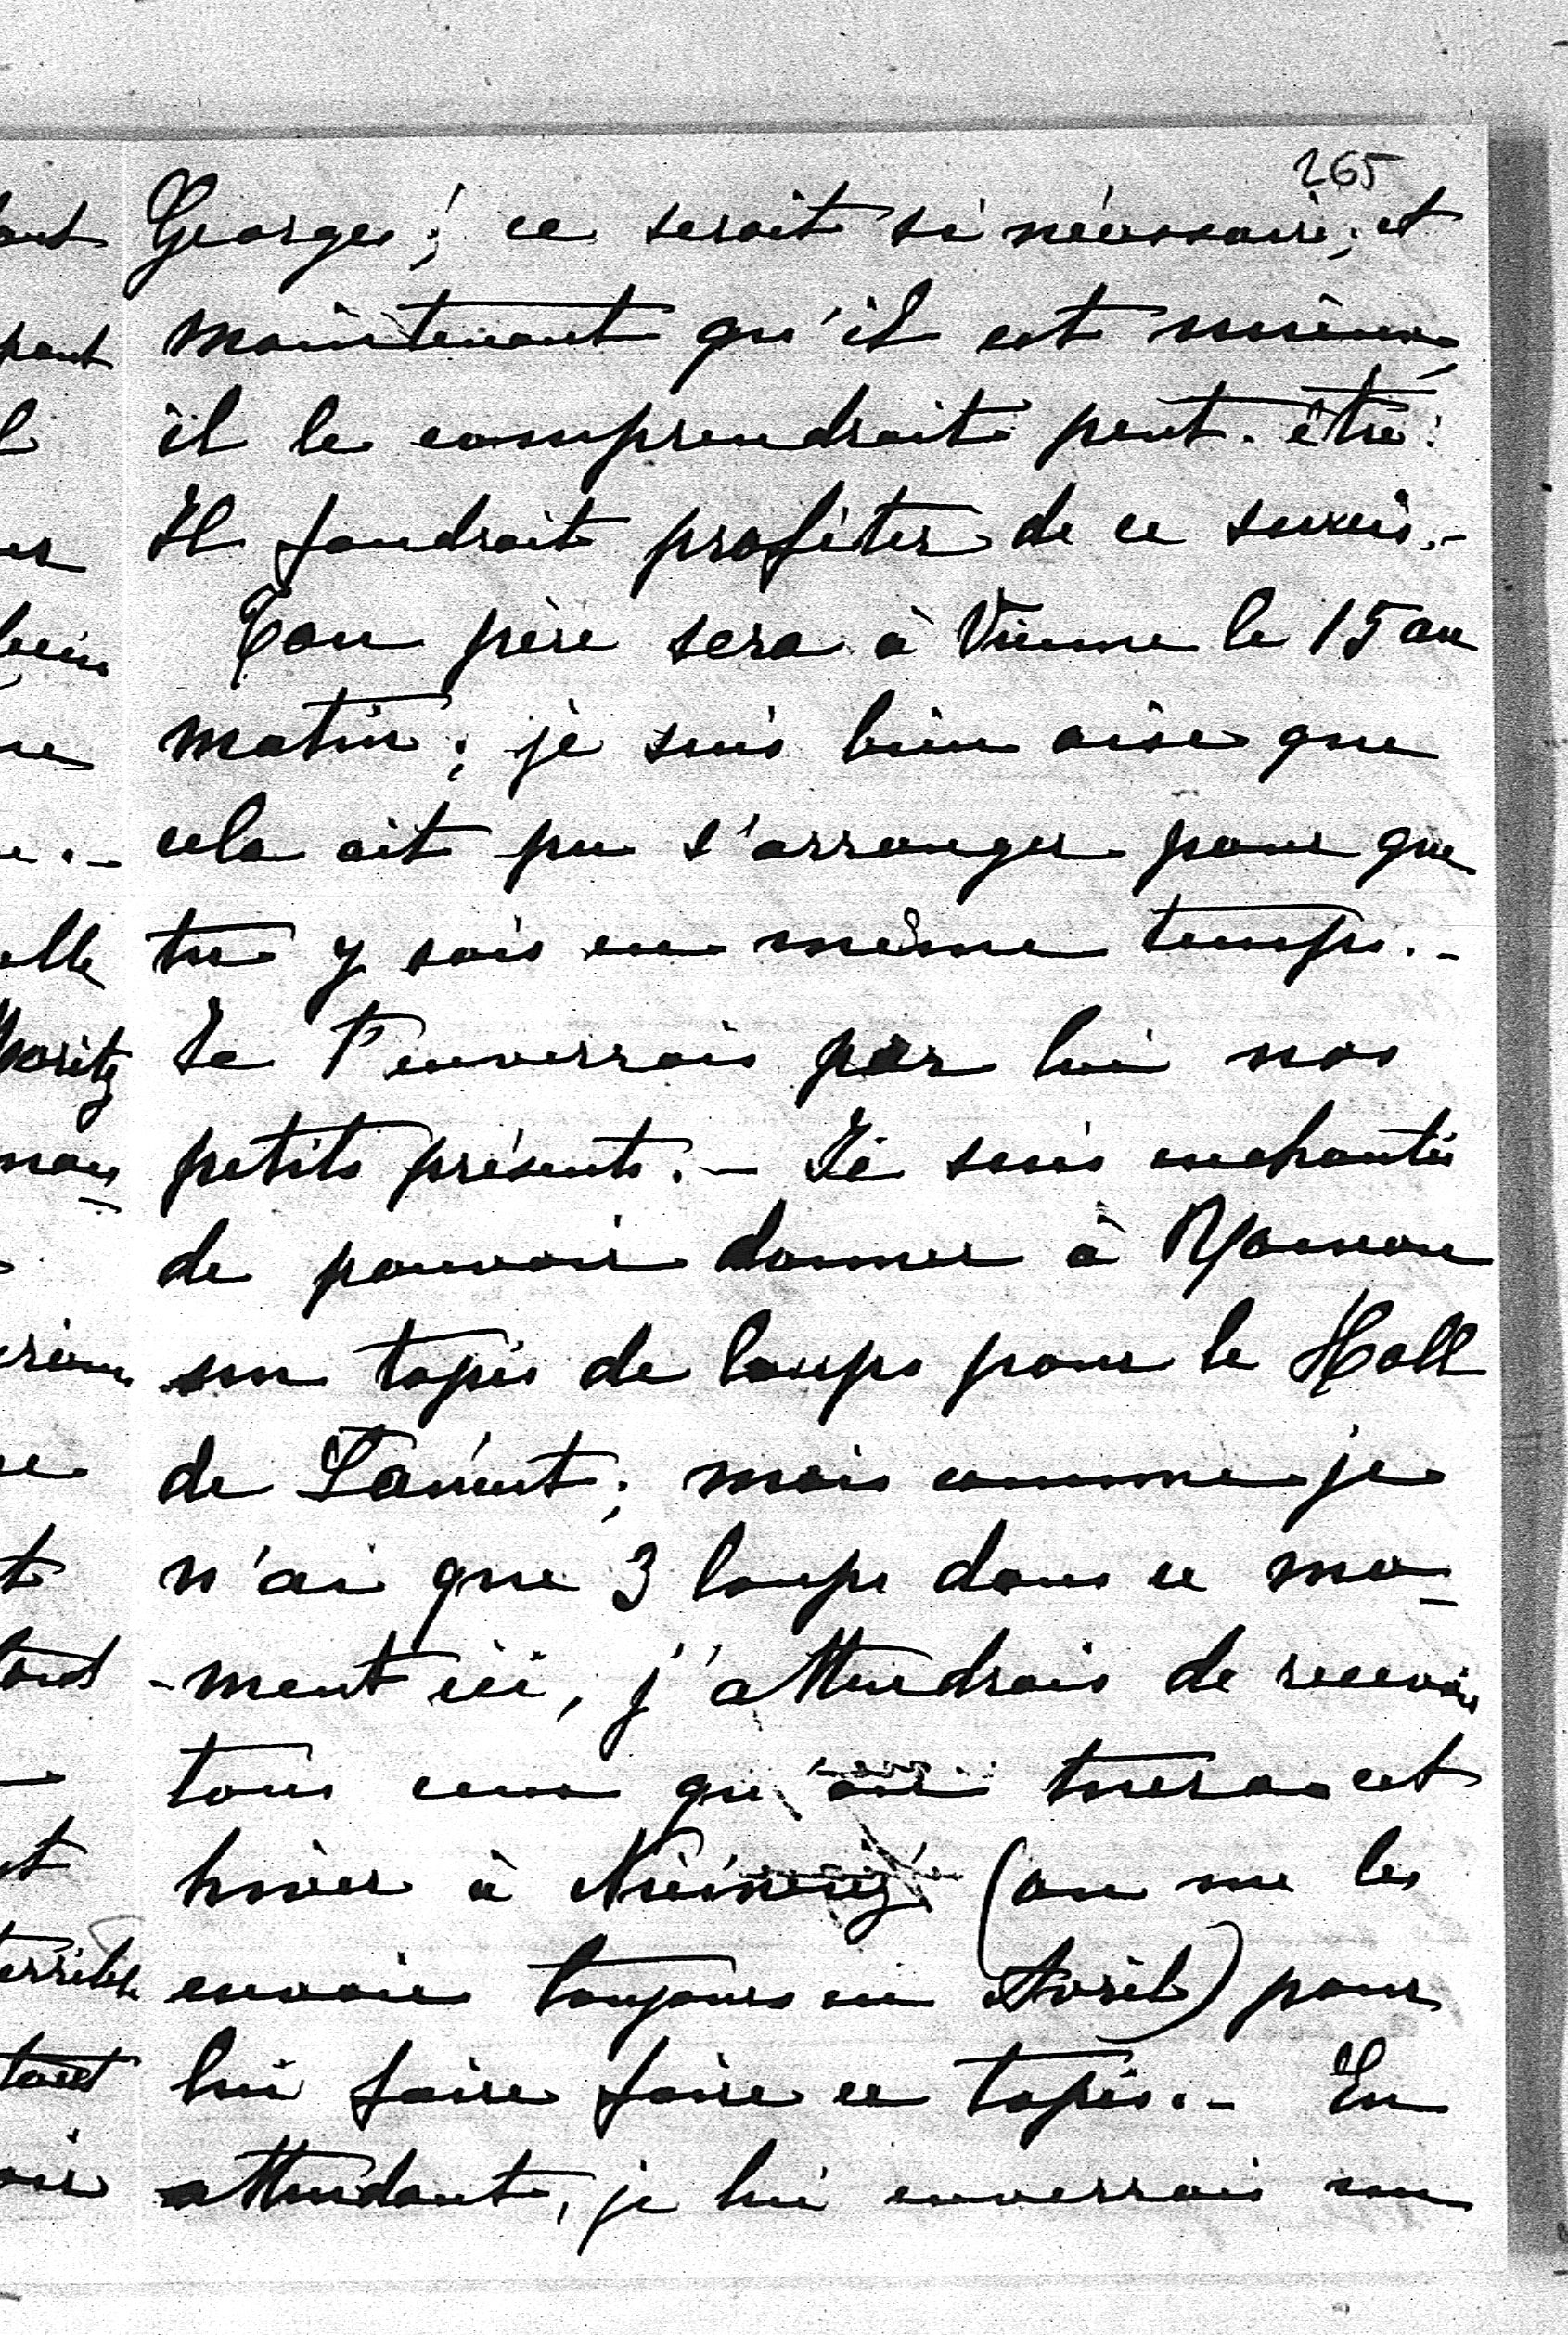 265
Georges; ce serait si nécessaire; et
maintenant qu'il est mieux,
il le comprendrait peut-être.
Il faudrait profiter de ce sursis.-
Ton père sera à Vienne le 15 au
matin; je suis bien aise que
cela ait pu s'arranger pour que
tu y sois en même temps.-
Je t'enverrais par lui nos
petits présents.- Je suis enchantée
de pouvoir donner à
un tapis de loups pour le Hall
de Lancut; mais comme je
n'ai que 3 loups dans ce mo-
-ment ici, j'attendrais de recevoir
tous ceux qu'on tuera cet
hiver à (on me les
envoie toujours en Avril) pour
lui faire faire ce tapis.- En
attendant, je lui enverrais un